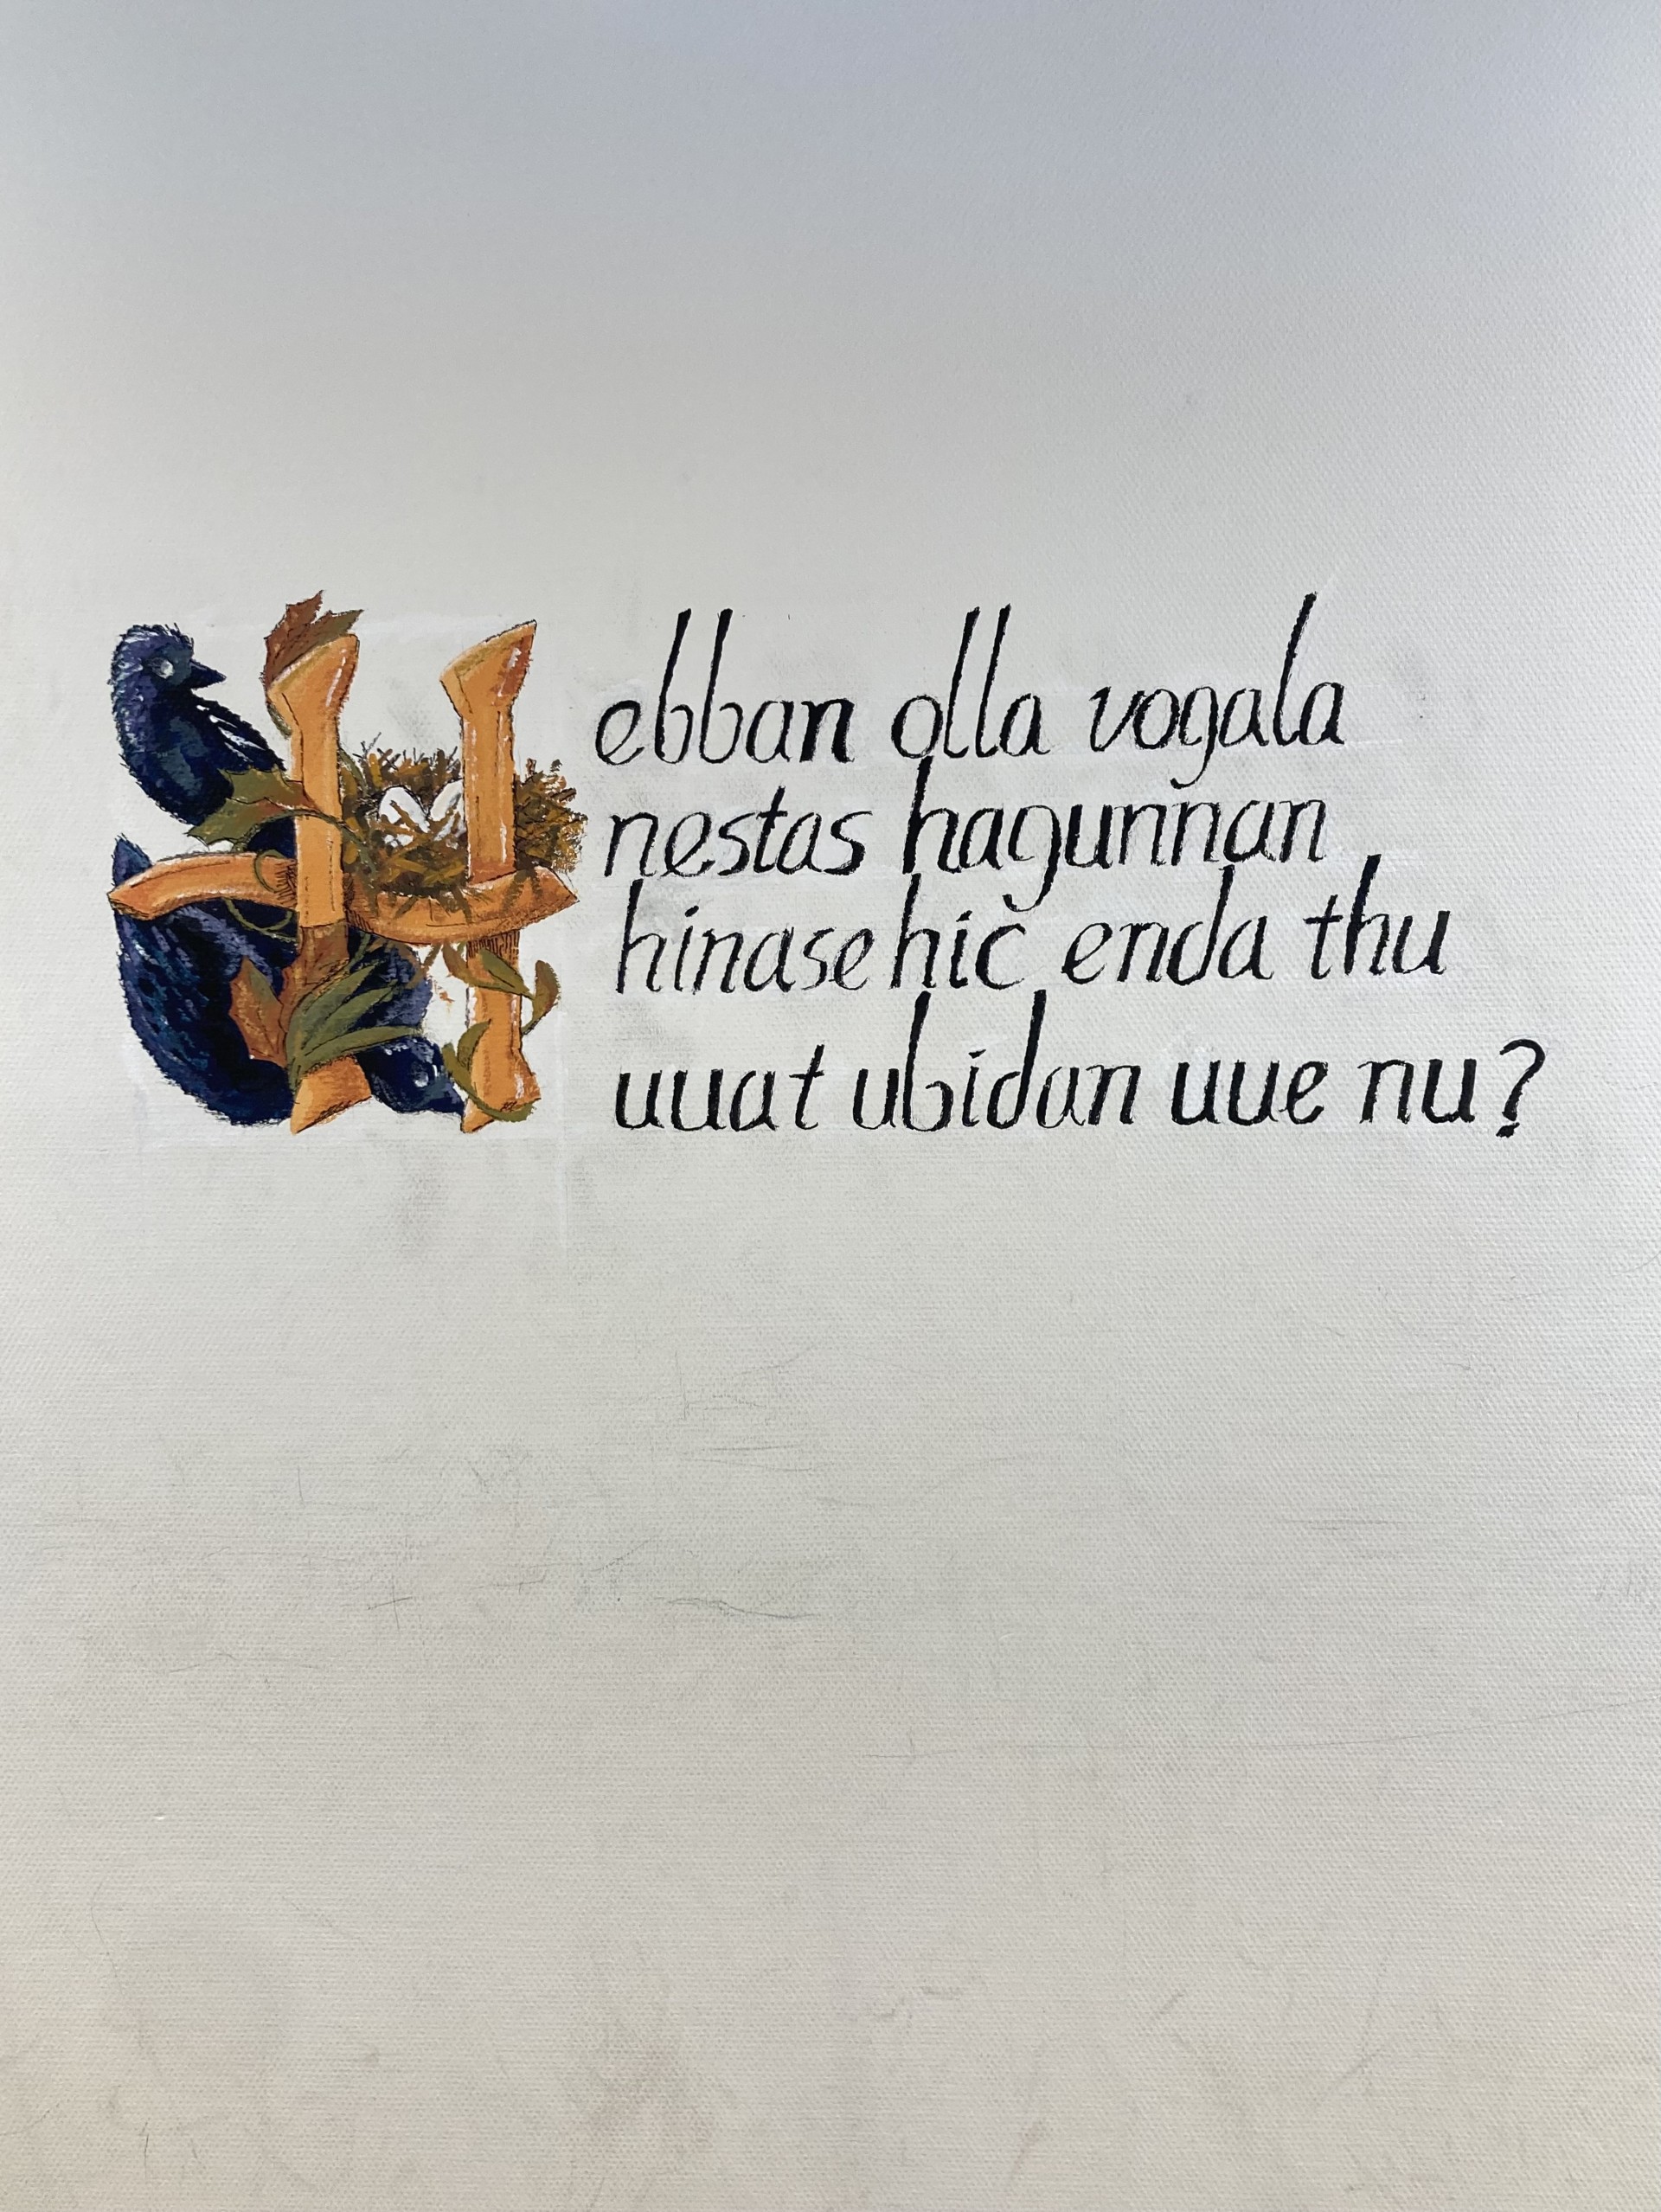 Hebban olla vogala
nestas hagunnan
hinase hic enda thu
uuat ubidan uue nu?